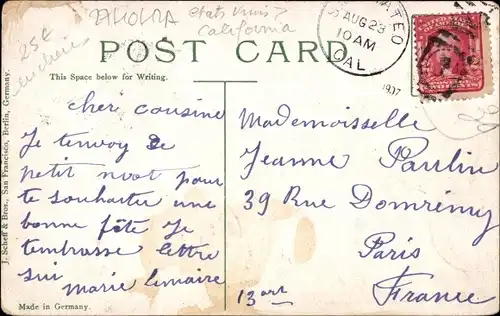 TAHOMA
etats unis ?
californie
25c
POST CARD
MATEO
AUG 23
10 AM
CAL.
1907
This Space below for Writing.
cher cousine
Je tenvoy de
petit mot pour
te souhaiter une
bonne fête Je
tembrasse lettre
sui
marie lemaire
Mademoiselle
Jeanne Paulin
39 Rue Domrémy
Paris
13 art
France
J. Scheff & Bros., San Francisco, Berlin, Germany.
Made in Germany.